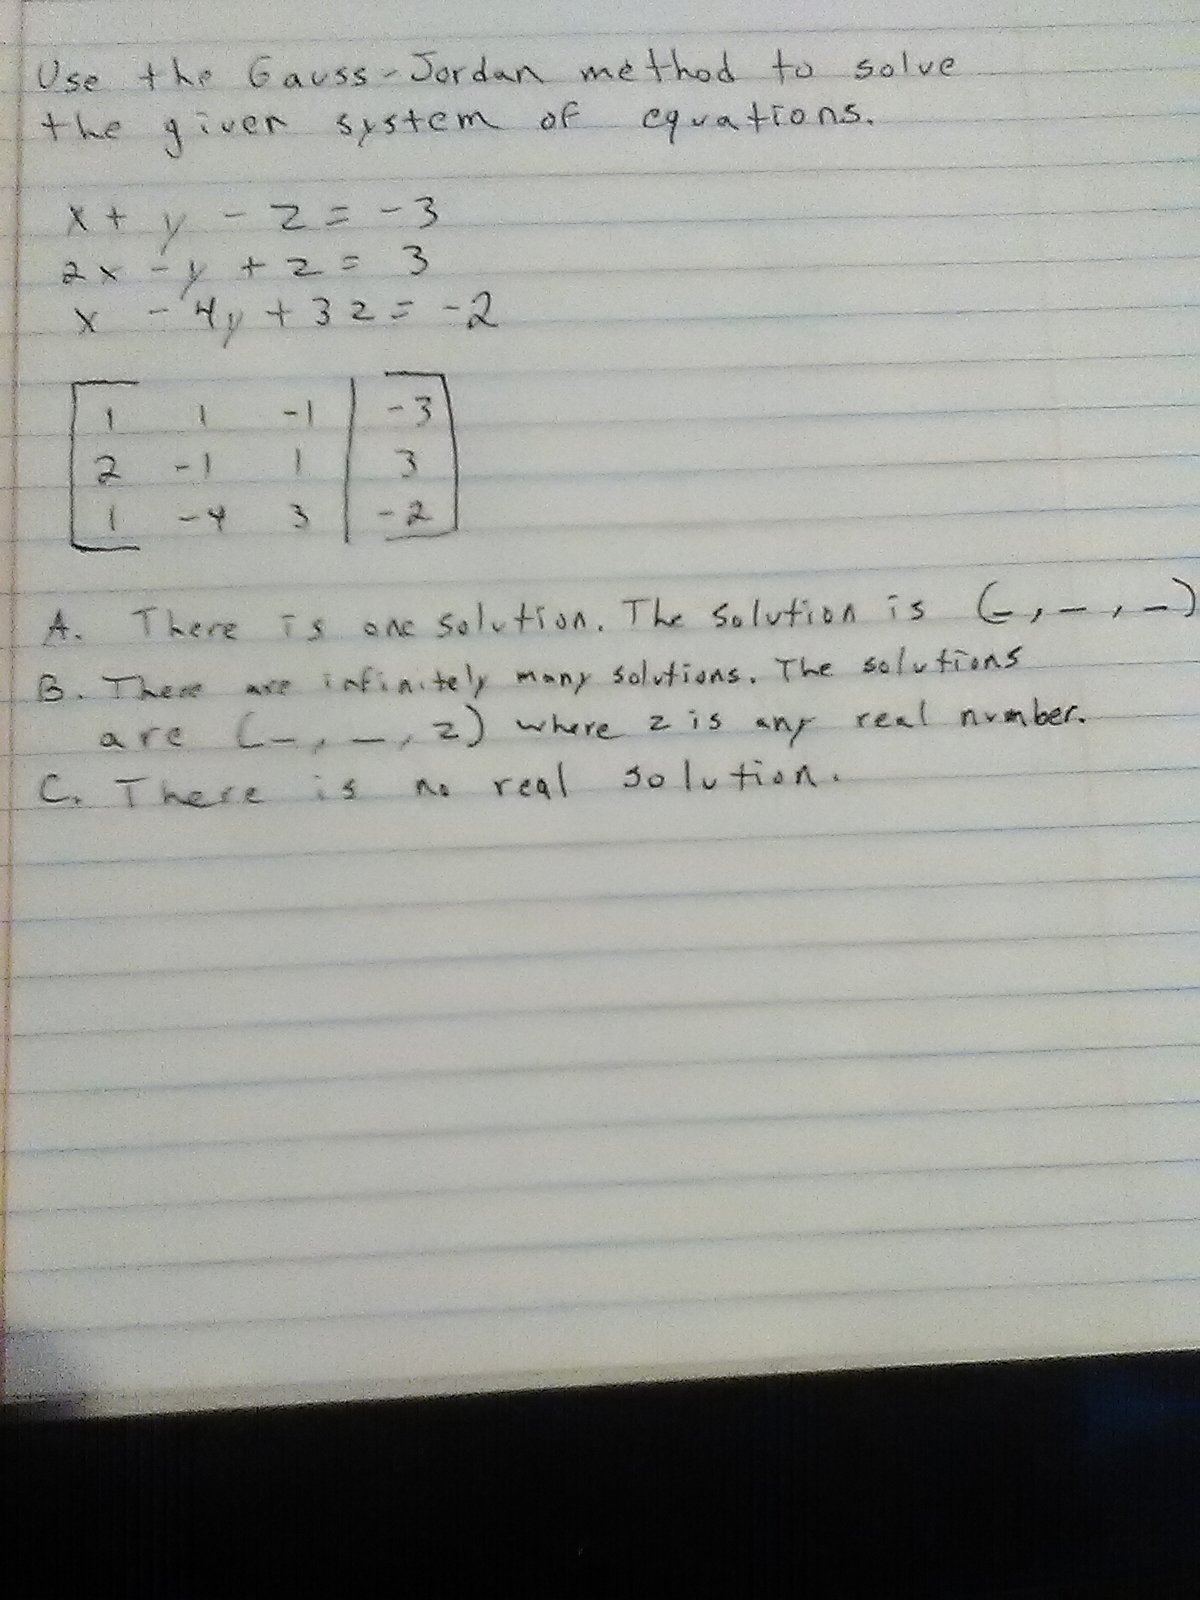 Use the Gauss-Jordan method to solve
the given system of equations.
x + y - z = -3
2x - y + z = 3
x - 4y + 3z = -2
1 1 -1 | -3
2 -1 1 | 3
1 -4 3 | -2
A. There is one solution. The solution is (_, _, _)
B. There are infinitely many solutions. The solutions
are (_, _, z) where z is any real number.
C. There is no real solution.